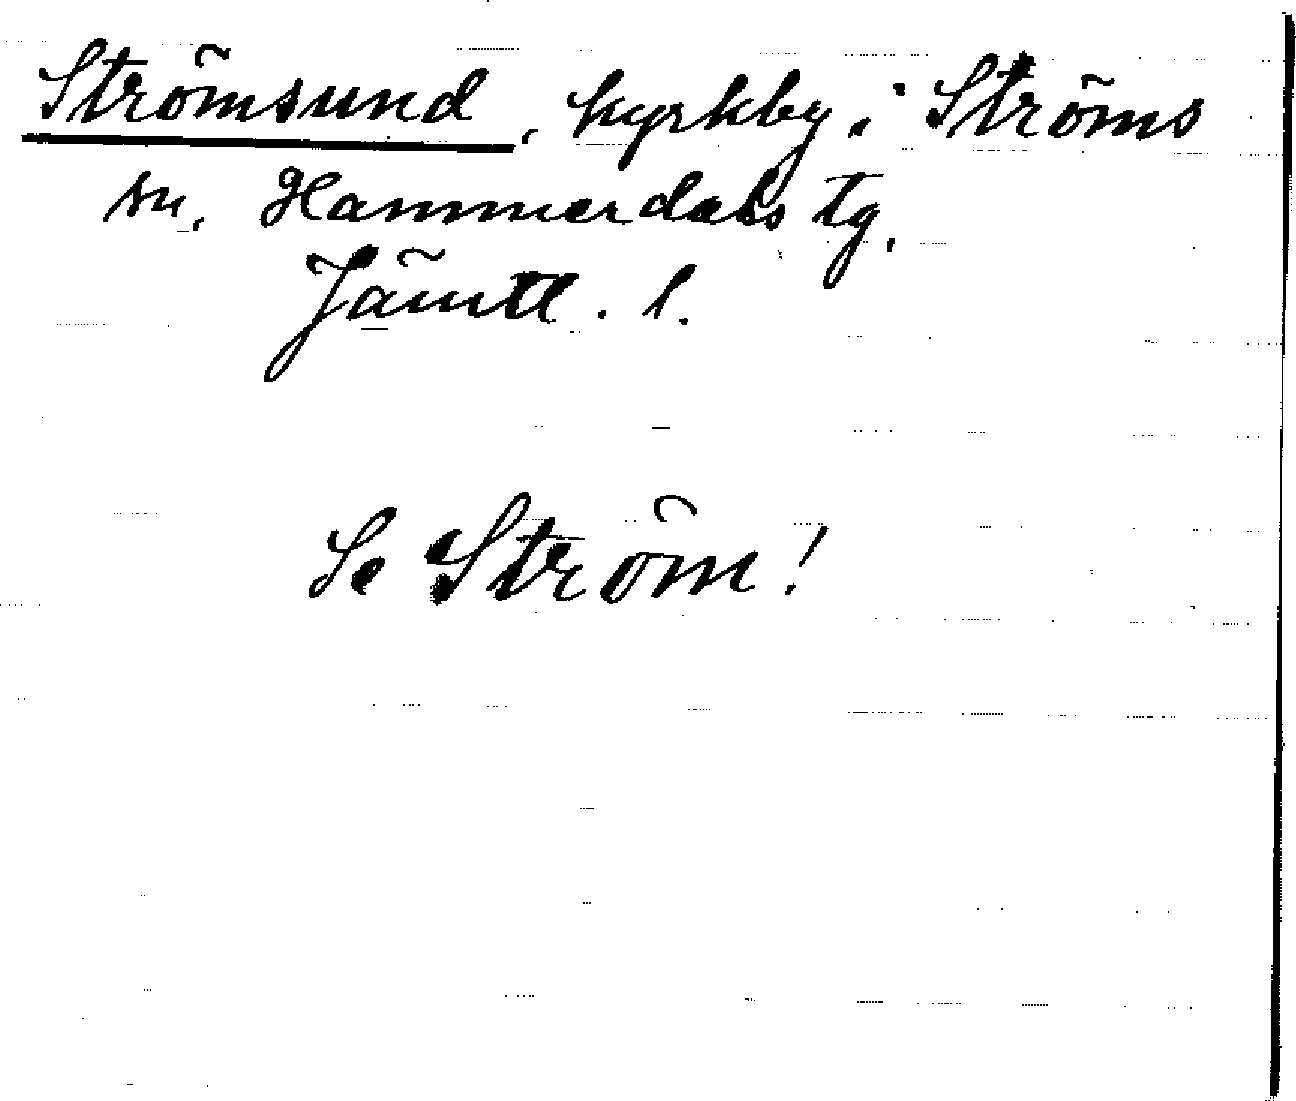 Strömsund, kyrkby i Ströms
sn. Hammerdals tg.
Jämtl. l.
Se Ström!